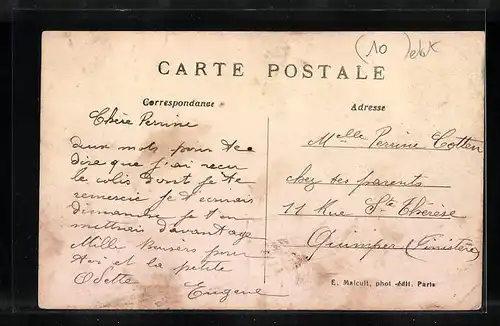 (10) ebx
CARTE POSTALE
Correspondance
Adresse
Chère Perrine
deux mots pour te
dire que j'ai reçu
le colis dont je te
remercie je t'écrirais
dimanche je t'en
mettrais d'avantage
Mille baisers pour
toi et la petite
Odette
Eugene
Melle Perrine Cotten
chez ses parents
11 Rue Ste Thérèse
Quimper (Finistère)
E. Malcuit, phot-édit. Paris